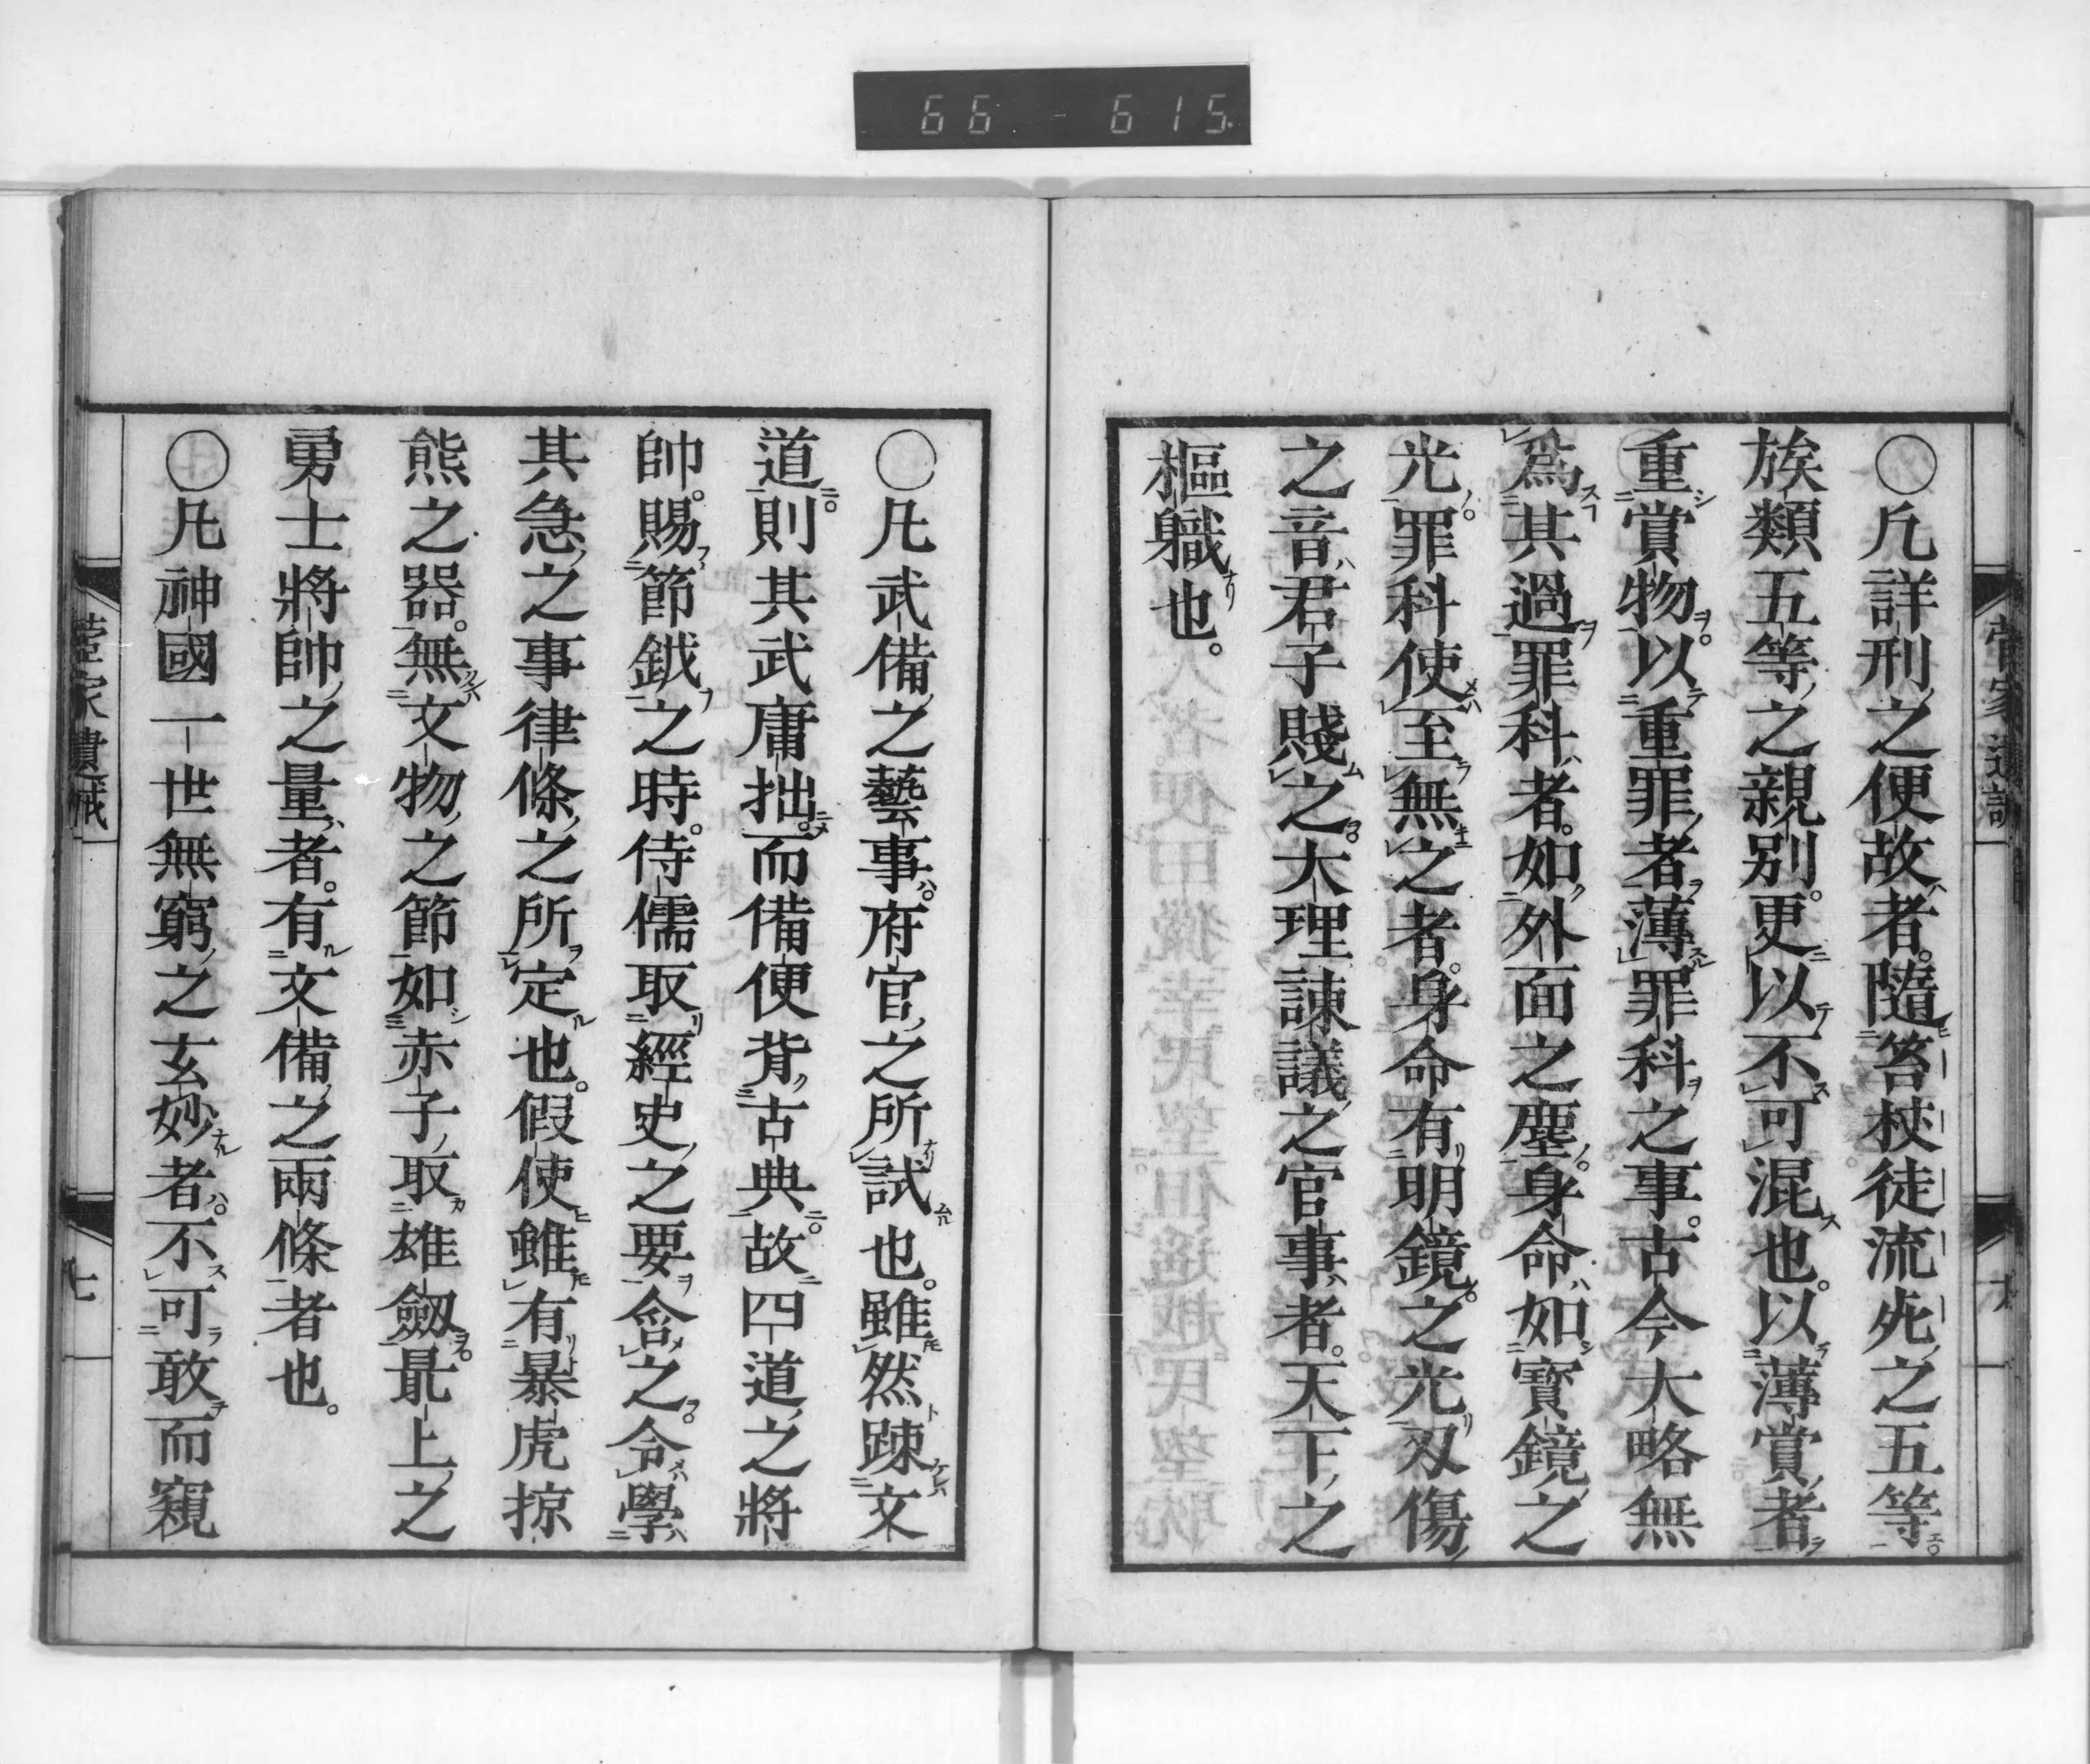 66 - 615
〇凡詳刑之便故者。隨笞杖徒流死之五等
族類五等之親別。更以不可混也。以薄賞者
重賞物。以重罪者薄罪科之事。古今大略無
爲其過罪科者。如外面之塵。身命如寶鏡之
光。罪科使至無之者。身命有明鏡之光刄傷
之音。君子賤之。大理諌議之官事者。天下之
樞軄也。
〇凡武備之藝事。府官之所試也。雖然踈文
道。則其武庸拙。而備便背古典。故四道之將
帥。賜節鉞之時。侍儒取經史之要含之。令學
其急之事律條之所定也。假使雖有暴虎掠
熊之器。無文物之節如赤子取雄劔。最上之
勇士將帥之量者。有文備之兩條者也。
〇凡神國一世無窮之玄妙者。不可敢而窺
菅家遺誡
七